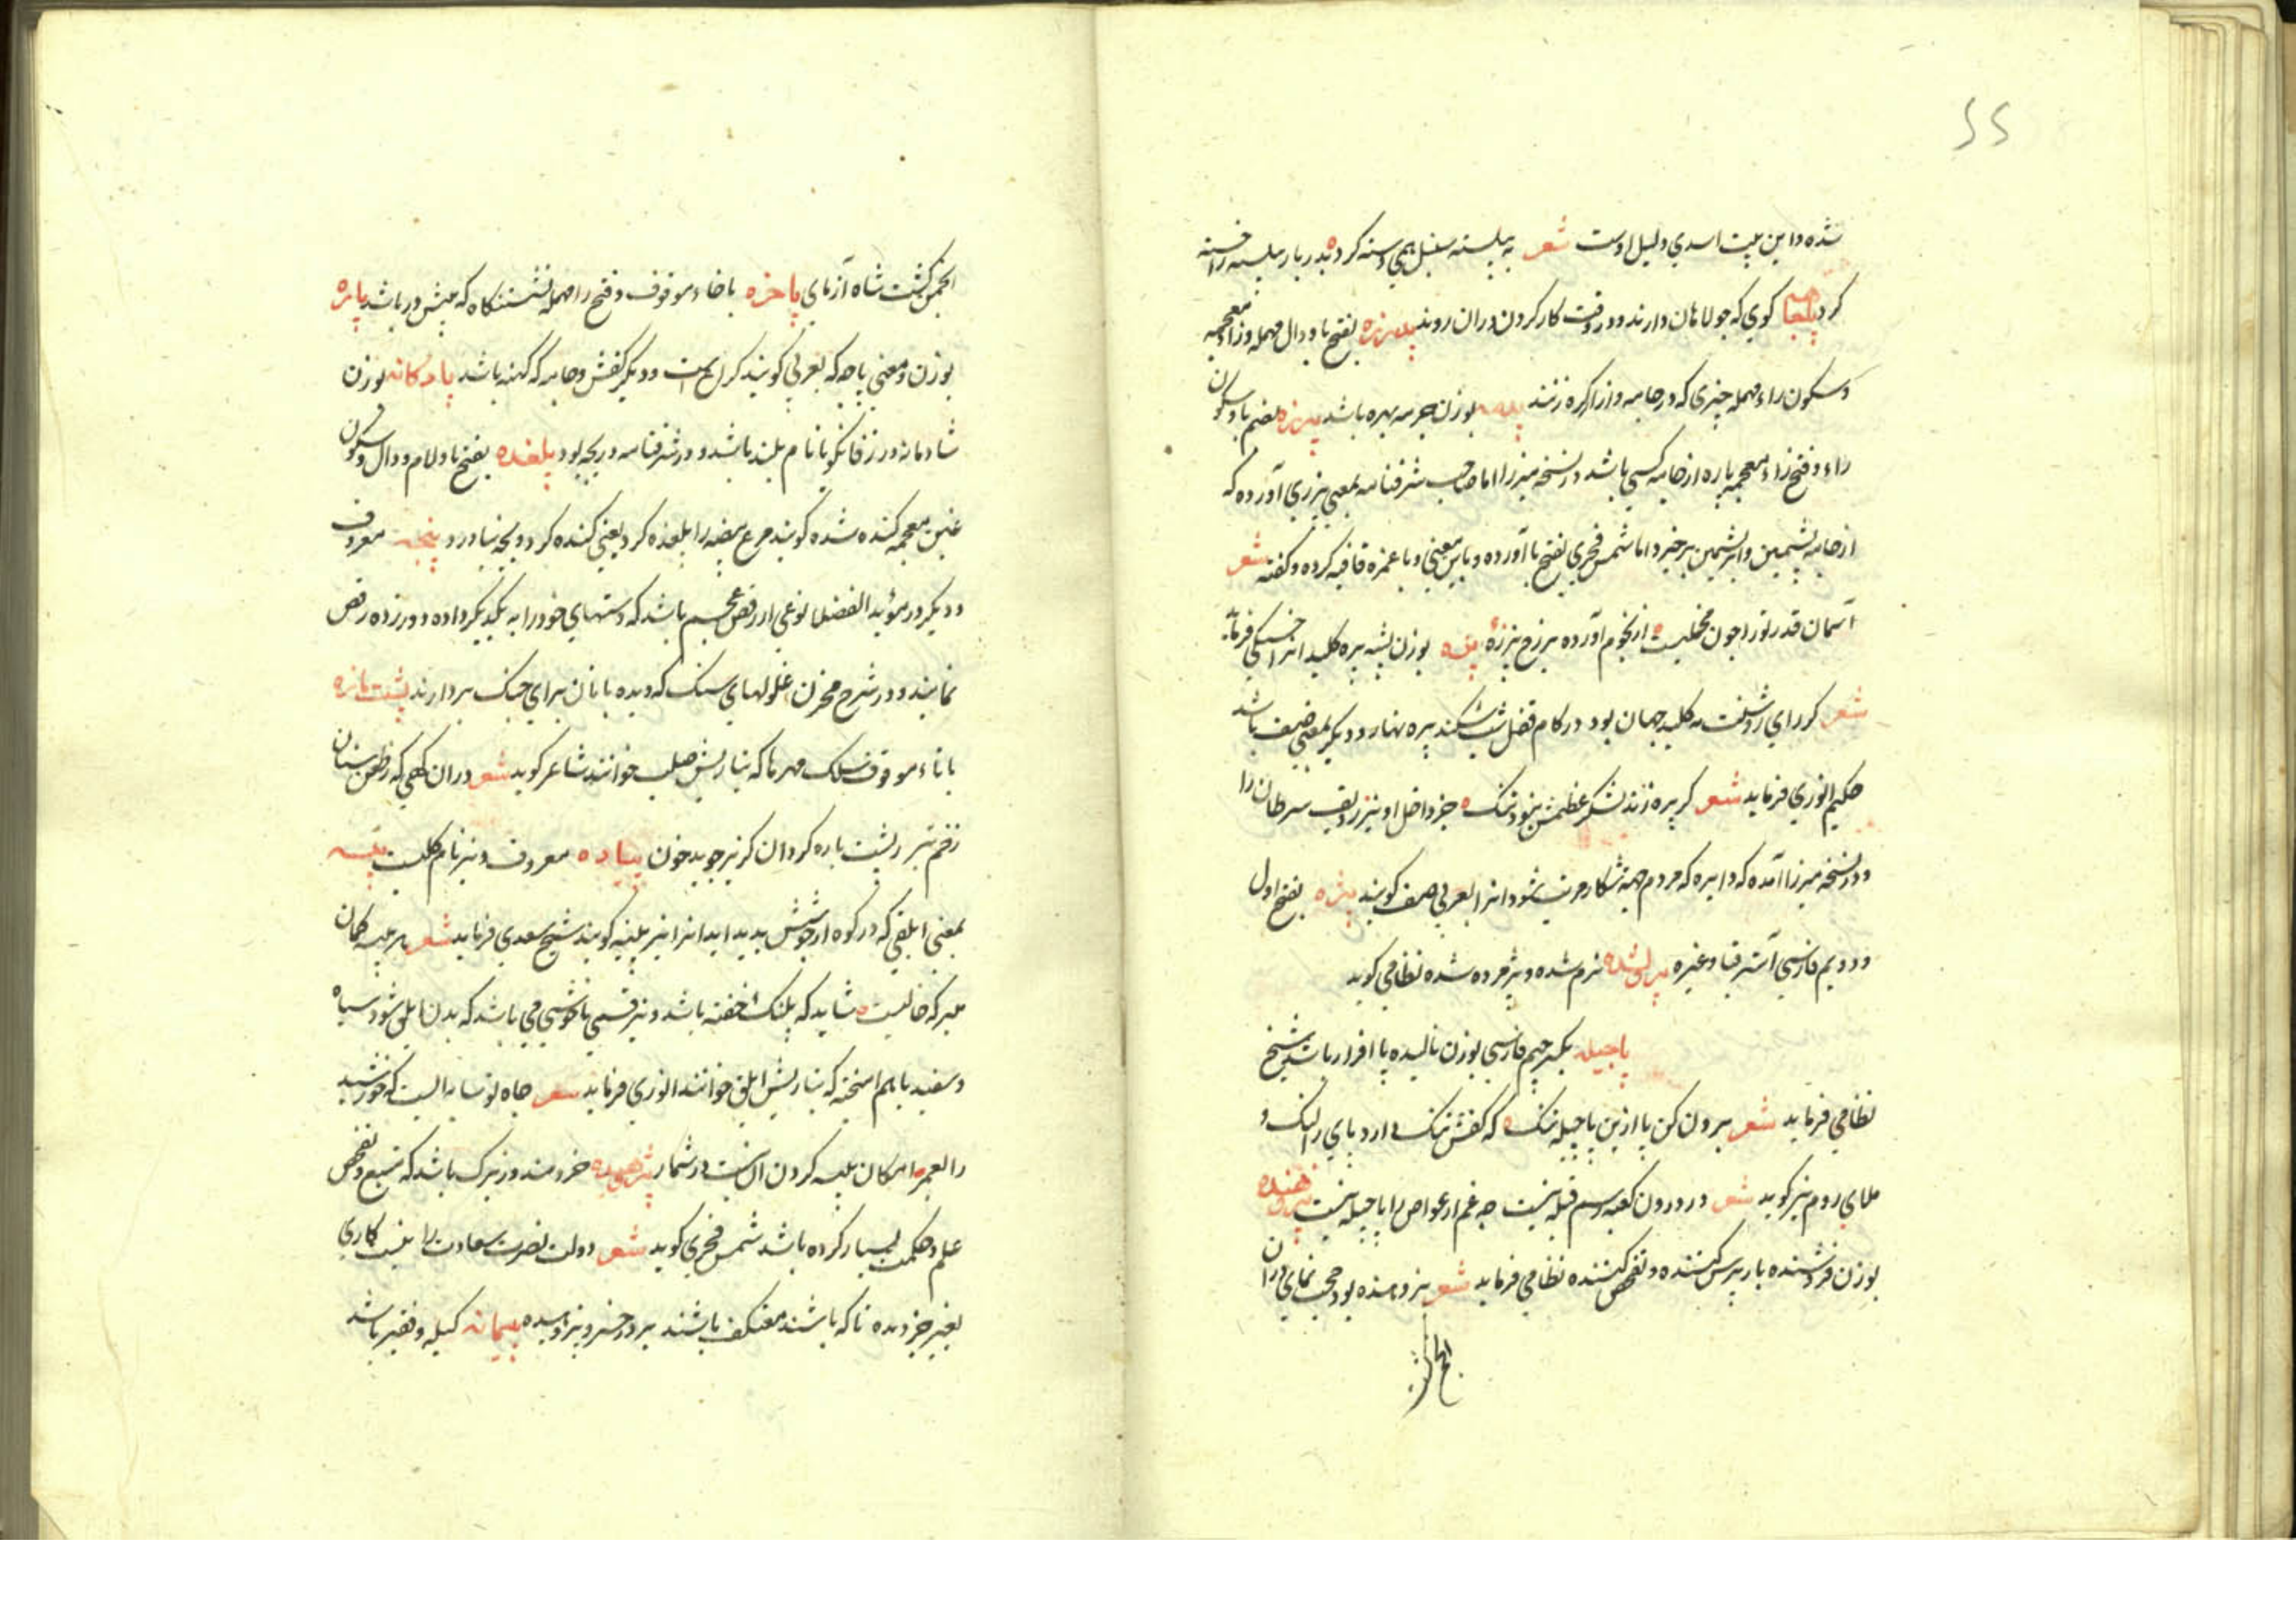 شده و این بیت اسدی دلیل اوست شعر به پیلسته سنبل همی دسته کرد ه بدر باز پیلسته را خسته
کرد پاچاهه کوی که جولاهان دارند و در وقت کار کردن در ان روند پدرزه بفتح با و دال مهمله و زاء معجمه
و سکون راء مهمله چیزی که در جامه و ازار کره زنند بوزن جرمه بهره باشد پرزه بضم با و سکون
راء و فتح زاء معجمه پاره از جامه کسی باشد در نسخه میرزا اما صاحب شرفنامه بمعنی پرزی آورده که
از جامه پشمین و ابریشمین برخیزد اما شمس فخری بفتح با آورده و باین معنی و با غمزه قافیه کرده و گفته شعر
آسمان قدر تو را چون مخملیست ه از نجوم آورده بر رخ پرزه پره بوزن پشه پره کلید انرا خسکی فرماید
شعر کر رای روشنت نه کلید جهان بود در کام قفل شب شکند پره نهار و دیکر بمعنی صف باشد
حکیم انوری فرماید شعر کر پره زند لشکر عظمش نبود تنک ه جز داخل او نیز ردیف سرطان را
و در نسخه میرزا آمده که دایره که مردم جهة شکار مرتب شود انرا بعربی صف کویند پژه بفتح اول
و دویم فارسی آستر قبا و غیره پژولیده نرم شده و پژمرده شده نظامی کوید
پاچیله بکسر جیم فارسی بوزن نالیده پا افزار باشد شیخ
نظامی فرماید شعر بیرون کن پا ازین پاچیله تنک ه که کفش تنک دارد پای را لنک و
ملای روم نیز کوید شعر در درون کعبه رسم قبله نیست چه غم ار غواص را پاچیله نیست پژوهنده
بوزن فروشنده باز پرس کننده و تفحص کننده نظامی فرماید شعر پژوهنده بود حجت نمای در ان
انجمن کشت
انجمن کشت شاه آزمای پاخره با خاء موقوف و فتح را مهمله نشستنکاه که پیش در باشد پازه
بوزن و معنی پاچه که بعربی کویند کراع است و دیکر کفش و جامه که کهنه باشد پادکانه بوزن
شادمانه در زفانکویا نام بلند باشد و در شرفنامه دریچه بود پلغده بفتح با و لام و دال و سکون
غین معجمه کنده شده کویند مرغ بیضه را پلغده کرد یعنی کنده کرد و بچه نیاورد و پنجه معروف
و دیکر در مؤید الفضلا نوعی از رقص عجم باشد که دستهای خود را به یکدیکر داده و ورزده رقص
نمایند و در شرح مخزن غلولهای سنک که دیده بانان برای جنک بردارند پشت مازه
با تاء موقوف سلک مهرها که بتازیش صلب خوانند شاعر کوید شعر در ان کهی که ز طعن سنان
زخم تبر ز پشت پاره کردان کزیر جوید خون پیاده معروف و نیز نام کلیست پیسه
بمعنی ابلقی که در کوه از جوشش پدید اید انرا نیز پلنیه کویند شیخ سعدی فرماید شعر هر پیسه کمان
مبر که خالیست ه شاید که پلنک خفته باشد و نیز قسمی ناخوشی می باشد که بدن ابلق شود سیاه
و سفید باهم امیخته که بتازیش ابلق خوانند انوری فرماید شعر جاه تو سایه ایست که خورشید
را بعمر ه امکان پیسه کردن ان نیست در شمار پژوهیده خردمند و زیرک باشد که تتبع و تفحص
علم و حکمت بسیار کرده باشد شمس فخری کوید شعر دولت نصرت سعادت را نیست کاری
بغیر جز دیده تا که باشند معتکف باشند بر در خسرو پژوهیده پیمانه کیله و قفیز باشد